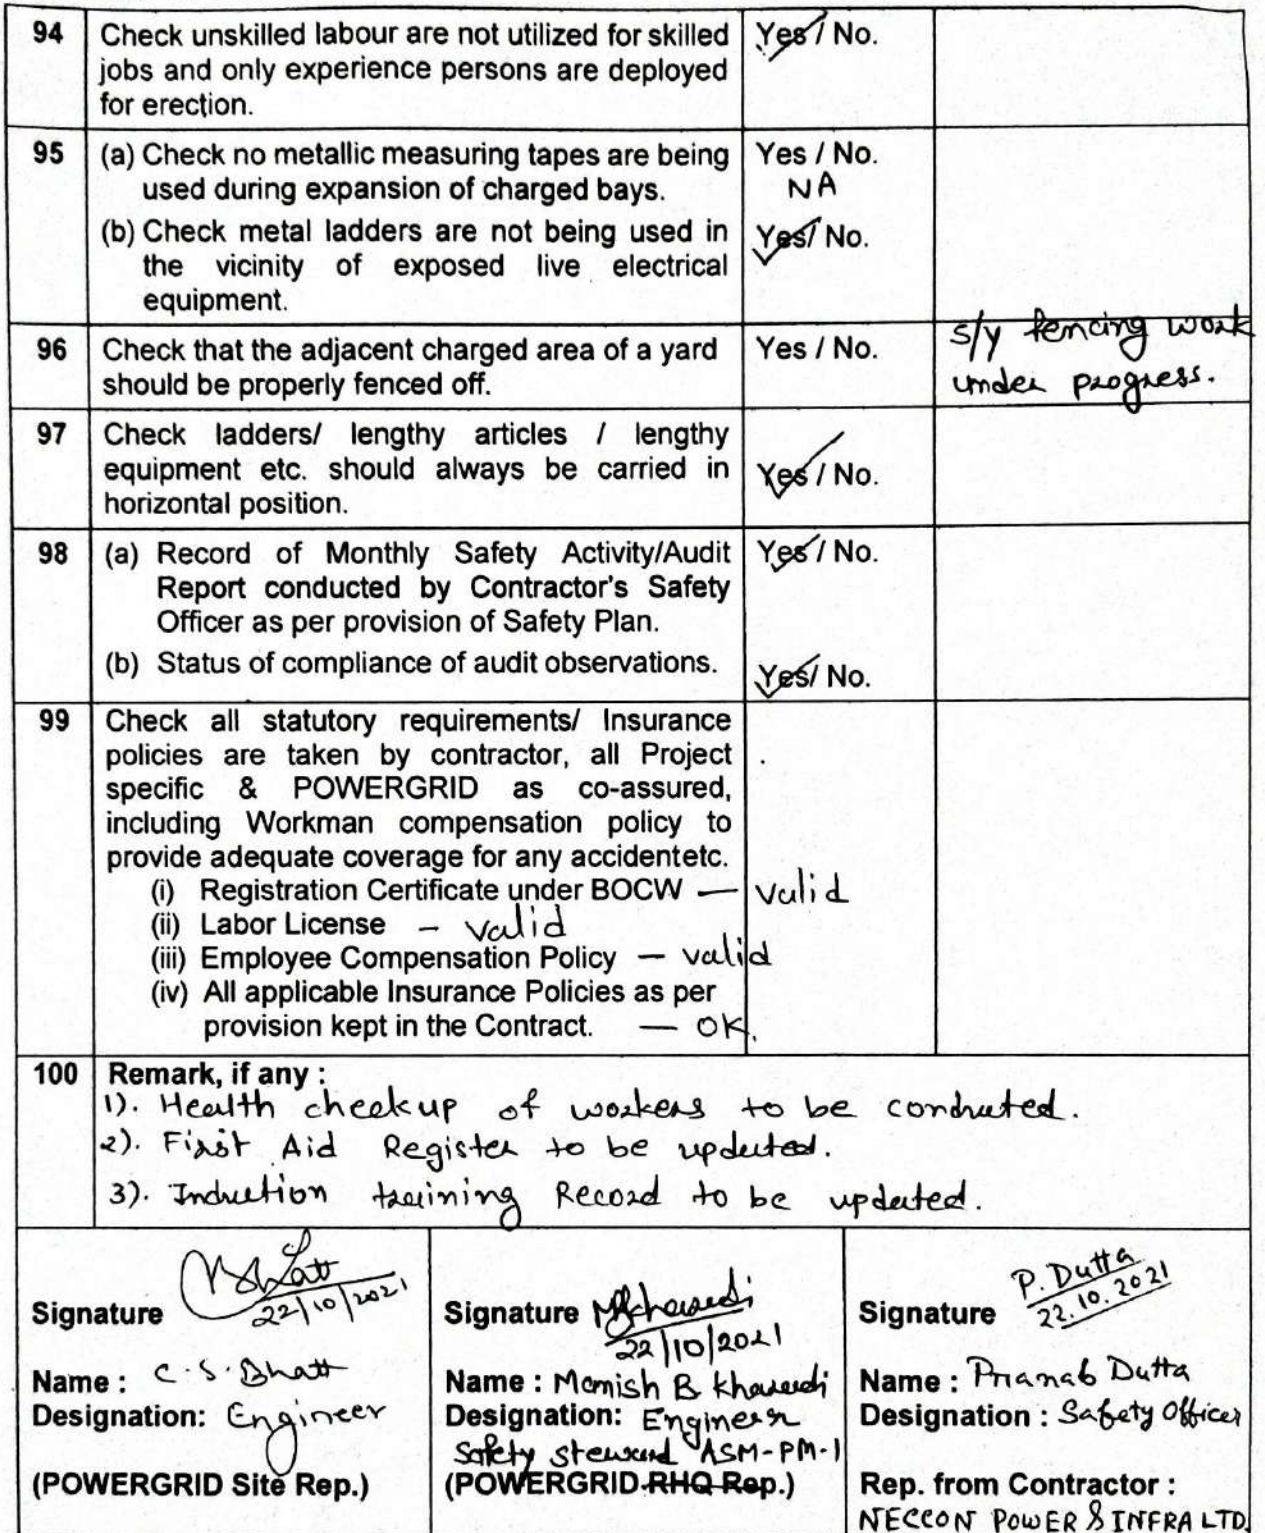 94 Check unskilled labour are not utilized for skilled Yes / No.
jobs and only experience persons are deployed
for erection.
95 (a) Check no metallic measuring tapes are being Yes / No.
used during expansion of charged bays. NA
(b) Check metal ladders are not being used in Yes/ No.
the vicinity of exposed live electrical
equipment.
96 Check that the adjacent charged area of a yard Yes / No. s/y fencing work
should be properly fenced off. under progress.
97 Check ladders/ lengthy articles / lengthy
equipment etc. should always be carried in Yes / No.
horizontal position.
98 (a) Record of Monthly Safety Activity/Audit Yes / No.
Report conducted by Contractor's Safety
Officer as per provision of Safety Plan.
(b) Status of compliance of audit observations. Yes/ No.
99 Check all statutory requirements/ Insurance
policies are taken by contractor, all Project
specific & POWERGRID as co-assured,
including Workman compensation policy to
provide adequate coverage for any accidentetc.
(i) Registration Certificate under BOCW — valid
(ii) Labor License – valid
(iii) Employee Compensation Policy — valid
(iv) All applicable Insurance Policies as per
provision kept in the Contract. — OK.
100 Remark, if any :
1). Health checkup of workers to be conducted.
2). First Aid Register to be updated.
3). Induction training Record to be updated.
Signature Bhatt 22/10/2021
Name : C.S.Bhatt
Designation: Engineer
(POWERGRID Site Rep.)
Signature 22/10/2021
Name : Manish B
Designation: Engineer
Safety steward ASM-PM-1
(POWERGRID RHQ Rep.)
Signature P. Dutta 22.10.2021
Name : Pranab Dutta
Designation : Safety Officer
Rep. from Contractor :
NECCON POWER & INFRA LTD.